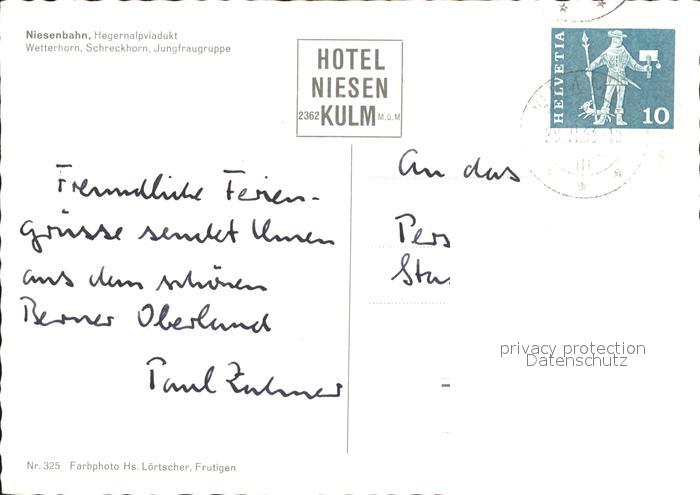 Niesenbahn, Hegernalpviadukt
Wetterhorn, Schreckhorn, Jungfraugruppe
HOTEL
NIESEN
2362 KULM M.ü.M
HELVETIA
10
Freundliche Ferien-
grüsse sendet Ihnen
aus dem schönen
Berner Oberland
Paul Zahner
An das
Pers
Sta
privacy protection
Datenschutz
Nr. 325 Farbphoto Hs. Lörtscher, Frutigen